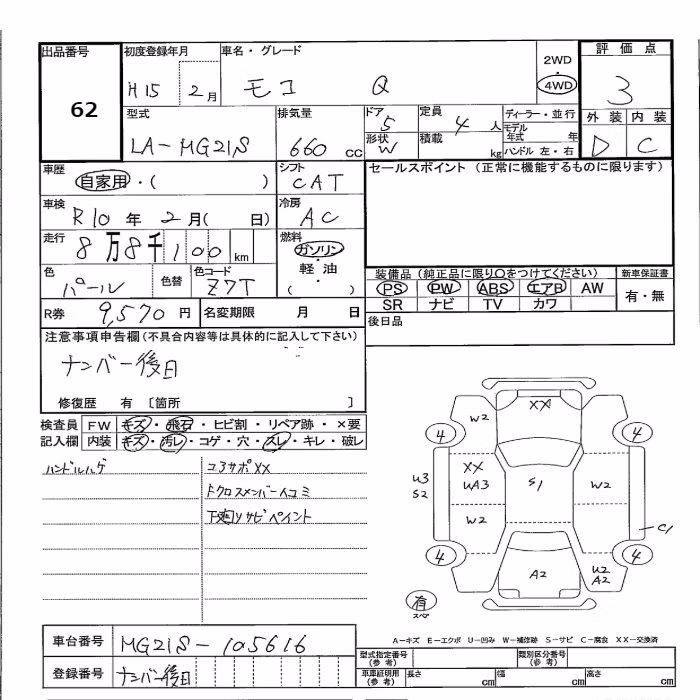 出品番号
62
初度登録年月
H15 2月
車名・グレード
モコ Q
2WD
・
4WD
評価点
3
外装 内装
D C
型式
LA-MG21S
排気量
660 cc
ドア
5
形状
W
定員
4 人
積載
kg
ディーラー・並行
モデル年式 年
ハンドル 左・右
車歴
自家用・( )
シフト
CAT
セールスポイント (正常に機能するものに限ります)
車検
R10年 2月( 日)
冷房
AC
走行
8万8千100 km
燃料
ガソリン
・
軽油
( )
色
パール
色替
色コード
Z7T
装備品(純正品に限り○をつけてください)
新車保証書
PS PW ABS エアB AW
SR ナビ TV カワ
有・無
R券 9,570 円
名変期限 月 日
後日品
注意事項申告欄(不具合内容等は具体的に記入して下さい)
ナンバー後日
修復歴 有 〔箇所 〕
検査員
記入欄
FW キズ・飛石・ヒビ割・リペア跡・×要
内装 キズ・汚レ・コゲ・穴・スレ・キレ・破レ
ハンドルハゲ
コアサポXX
Fクロスメンバー凹コミ
下廻リサビペイント
XX
W2
4
4
XX
UA3
U3
S2
S1
W2
W2
C1
4
4
A2
U2
A2
有
スペア
A-キズ E-エクボ U-凹み W-補修跡 S-サビ C-腐食 XX-交換済
車台番号
MG21S-105616
登録番号
ナンバー後日
型式指定番号
(参考)
類別区分番号
(参考)
車庫証明用
(参考)
長さ cm
幅 cm
高さ cm